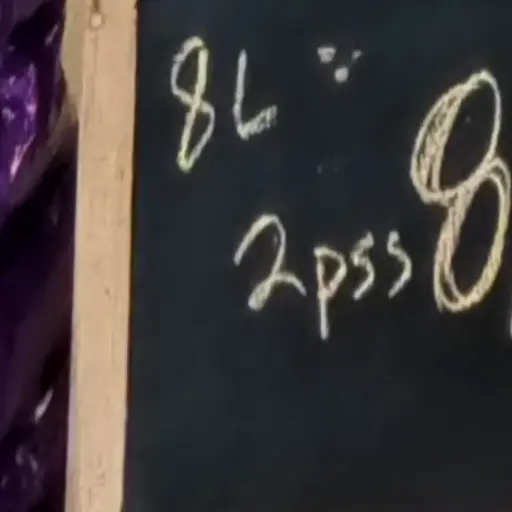 8L
2pss 8